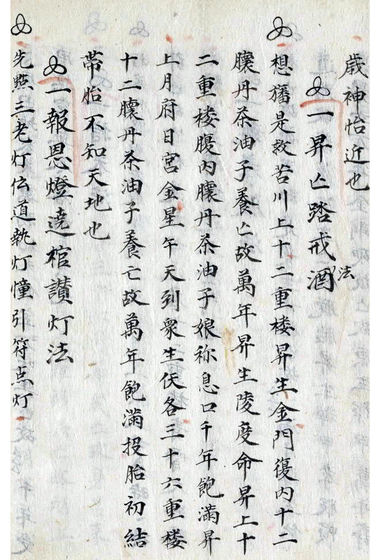 歲神怡近也
一昇亡踏戒酒法
想猶是救苦川上十二重楼昇生金門復内十二
臟丹茶油子養亡故萬年昇生陵度命昇上十
二重楼腹内臟丹茶油子娘祢息口千年飽滿昇
上月府日宮金星午天到衆生仸各三十六重楼
十二臟丹茶油子養亡故萬年飽滿投胎初結
帶胎不知天地也
一報恩燈遶棺讚灯法
先照三老灯伝道執灯幢引符点灯